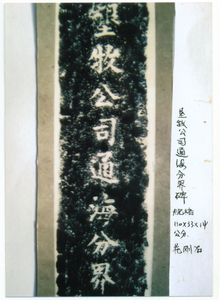 墾牧公司通海分界
垦牧公司通海分界碑
110×33×14
公分
花刚石